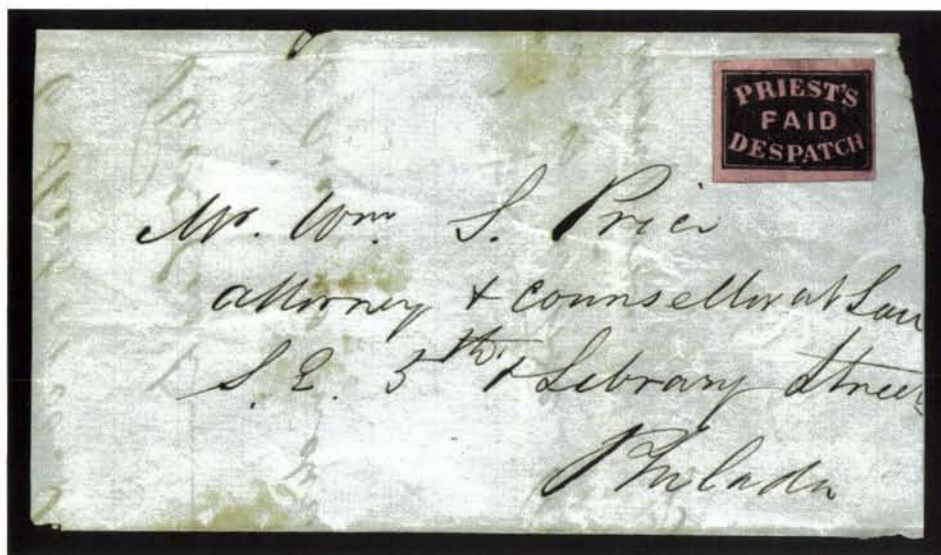 PRIEST'S
PAID
DESPATCH
Mr. Wm. S. Price
attorney & counsellor at Law
S. E. 5th & Library Street
Philada